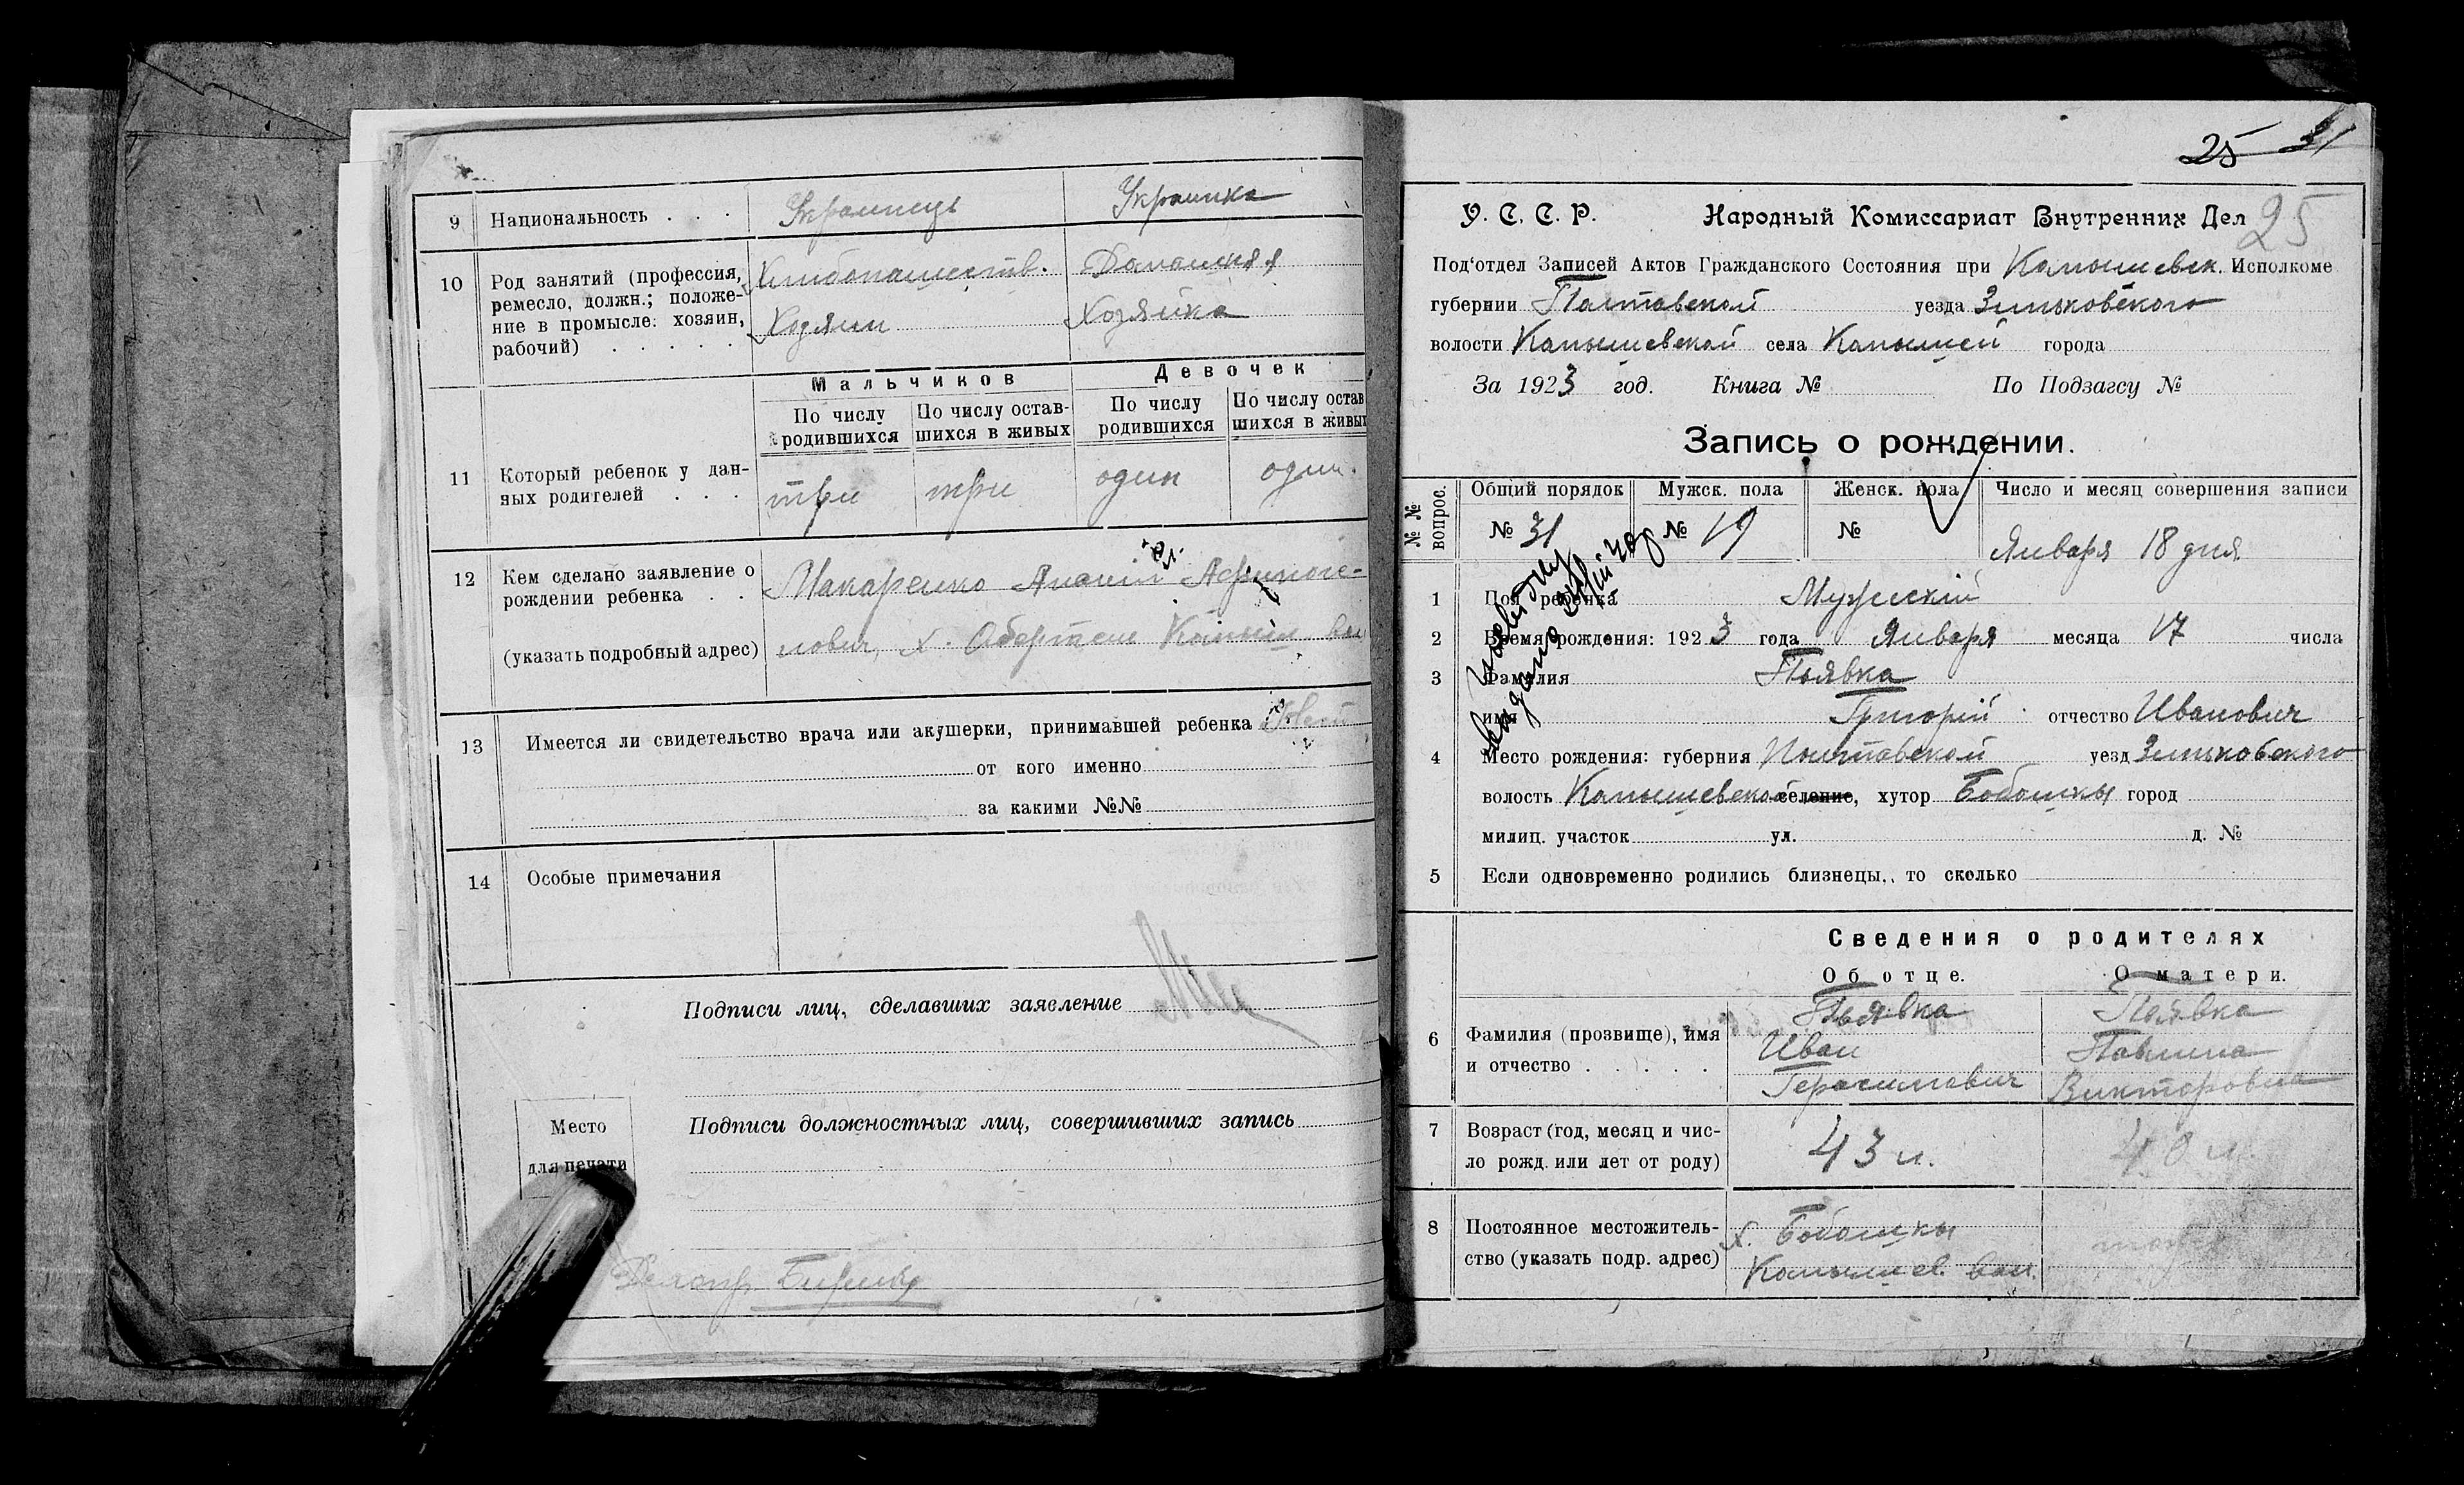 9 Национальность . . . Украинець Украинка
10 Род занятий (профессия, Хлибопашеств. Домашняя
ремесло, должн.; положе-
ние в промысле: хозяин, Ходяин Хозяйка
рабочий) . . . . .
Мальчиков Девочек
По числу По числу остав- По числу По числу остав
родившихся шихся в живых родившихся шихся в живы
11 Который ребенок у дан- три три один один.
ных родителей . . .
12 Кем сделано заявление о Макаренко Ананій
рождении ребенка . .
(указать подробный адрес) нович, х.
13 Имеется ли свидетельство врача или акушерки, принимавшей ребенка
от кого именно
за какими №№
14 Особые примечания
Подписи лиц, сделавших заявление
Место Подписи должностных лиц, совершивших запись
для печати
25 31
У. С. С. Р. Народный Комиссариат Внутренних Дел 25
Под'отдел Записей Актов Гражданского Состояния при Камышевск. Исполкоме
губернии Полтавской уезда Зиньковского
волости Камышевской села Камышей города
За 1923 год. Книга № По Подзагсу №
Запись о рождении.
№ № вопрос. Общий порядок Мужск. пола Женск. пола Число и месяц совершения записи
№ 31 № 19 № Января 18 дня
1 Пол ребенка Мужескій
2 Время рождения: 1923 года Января месяца 17 числа
3 Фамилия Пьявка
имя Григорій отчество Иванович
4 Место рождения: губерния Полтавской уезд Зиньковского
волость Камышевской селение, хутор Бобошкы город
милиц. участок ул. д. №
5 Если одновременно родились близнецы, то сколько
Сведения о родителях
Об отце. О матери.
6 Фамилия (прозвище), имя Пьявка Пьявка
и отчество . . . . . Иван Павлина
Герасимович Викторовна
7 Возраст (год, месяц и чис- 43 л. 40 л.
ло рожд. или лет от роду)
8 Постоянное местожитель- х. Бобошкы тоже
ство (указать подр. адрес) Камышев. вол.